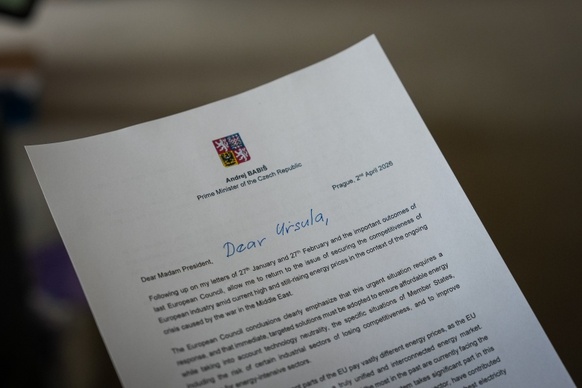 Andrej BABIŠ
Prime Minister of the Czech Republic
Prague, 2nd April 2026
Dear Madam President, Dear Ursula,
Following up on my letters of 27th January and 27th February and the important outcomes of
last European Council, allow me to return to the issue of securing the competitiveness of
European industry amid current high and still-rising energy prices in the context of the ongoing
crisis caused by the war in the Middle East.
The European Council conclusions clearly emphasize that this urgent situation requires a
response, and that immediate, targeted solutions must be adopted to ensure affordable energy
while taking into account technology neutrality, the specific situations of Member States,
including the risk of certain industrial sectors of losing competitiveness, and to improve
for energy-intensive sectors.
parts of the EU pay vastly different energy prices, as the EU
truly unified and interconnected energy market.
most in the past are currently facing the
taken takes significant part in this
sector, have contributed
electricity